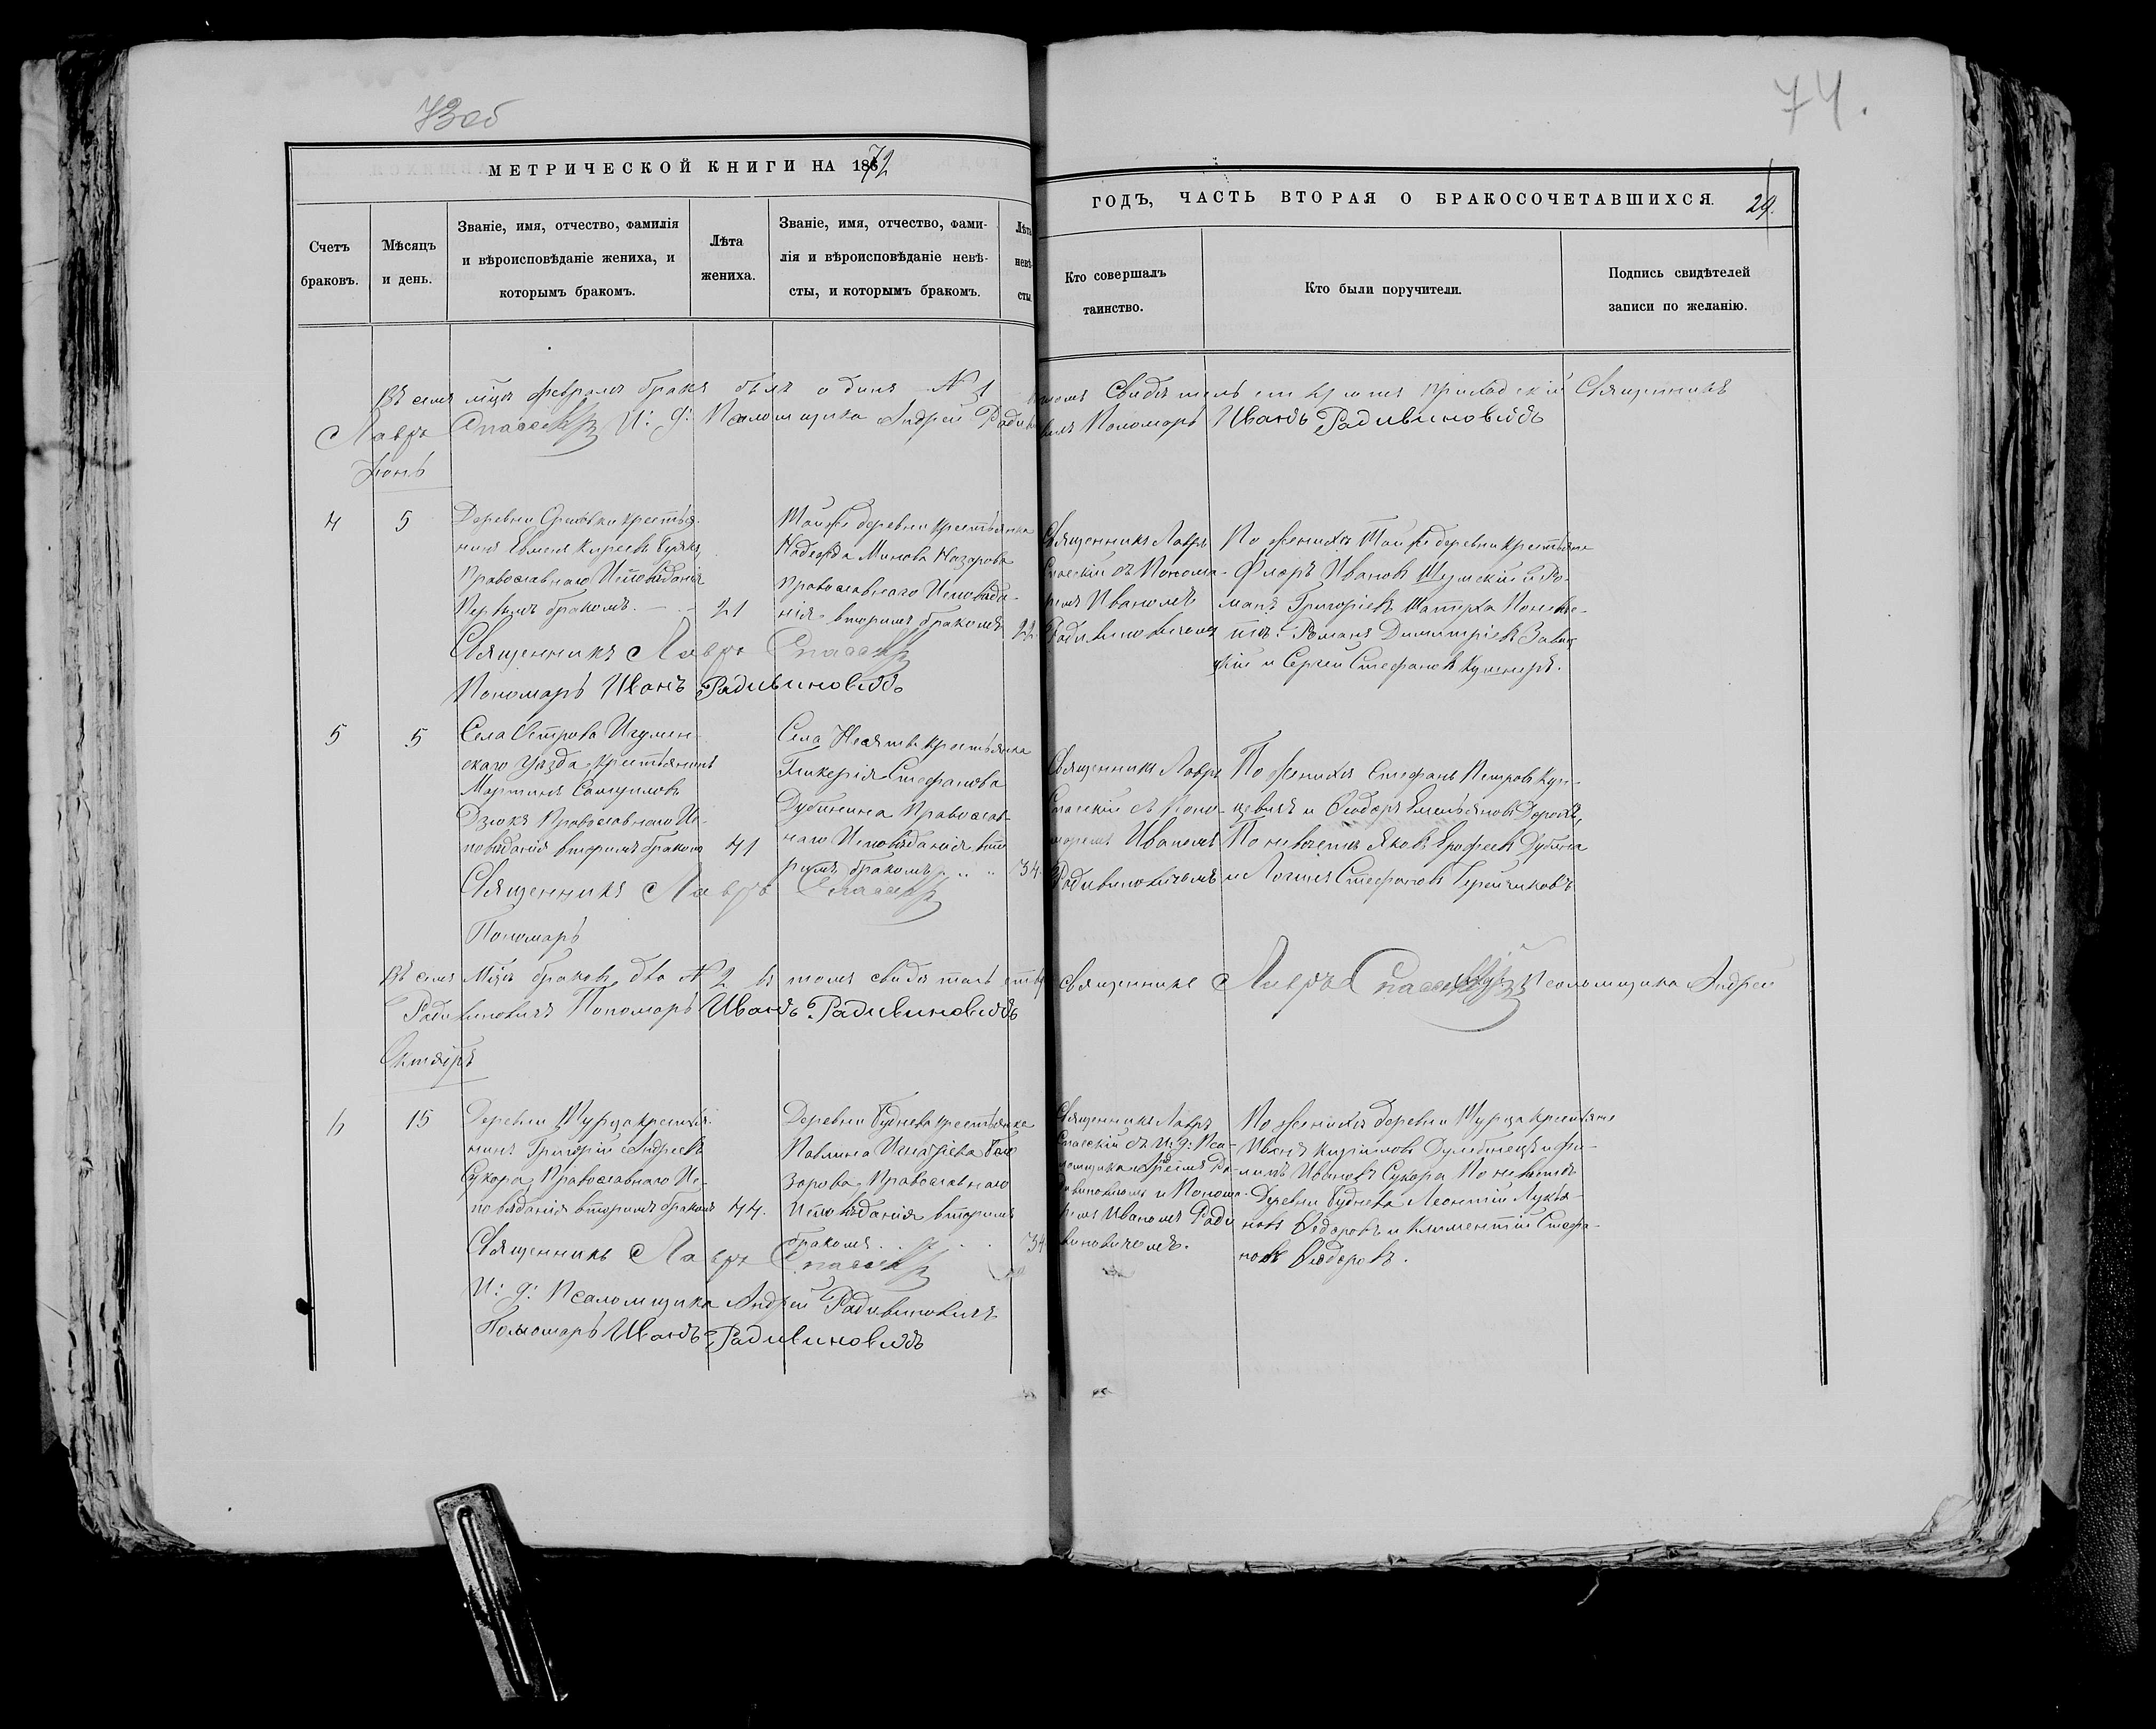 73об
74.
МЕТРИЧЕСКОЙ КНИГИ НА 1872
ГОДЪ, ЧАСТЬ ВТОРАЯ О БРАКОСОЧЕТАВШИХСЯ.
29.
Счетъ
браковъ.
Мѣсяцъ
и день.
Званіе, имя, отчество, фамилія
и вѣроисповѣданіе жениха, и
которымъ бракомъ.
Лѣта
жениха.
Званіе, имя, отчество, фами-
лія и вѣроисповѣданіе невѣ-
сты, и которымъ бракомъ.
Лѣта
невѣ-
сты.
Кто совершалъ
таинство.
Кто были поручители.
Подпись свидѣтелей
записи по желанію.
Въ семъ мцѣ февралѣ бракъ былъ одинъ № 1 томъ свидѣтельствуютъ приходскій Священникъ
Лавръ Спасскій И: д: Псаломщика Андрей Пономарь Иванъ Радивиновичъ
Іюнь
4
5
Деревни крестья-
нинъ Киреевъ
Православнаго Исповѣданія
Первымъ бракомъ.
21
Той же деревни крестьянка
Надежда Минова Назарова
Православнаго Исповѣда-
нія вторымъ бракомъ
22.
Священникъ Лавръ
Спасскій съ Понома-
ремъ Иваномъ
Радивиновичемъ
По женихѣ Той же деревни крестьяне
Флоръ Ивановъ Шумскій и Ро-
манъ Григорьевъ По невѣс-
тѣ: Романъ Димитріевъ
и Сергѣй Стефановъ Кушнеръ.
Священникъ Лавръ Спасскій
Пономарь Иванъ Радивиновичъ
5
5
Села Острова Игумен-
скаго Уѣзда крестьянинъ
Мартинъ Самуиловъ
Дзюкъ Православнаго Ис-
повѣданія вторымъ бракомъ
41
Села крестьянка
Гликерія Стефанова
Дубинина Православ-
наго Исповѣданія вто-
рымъ бракомъ
34.
Священникъ Лавръ
Спасскій съ Поно-
маремъ Иваномъ
Радивиновичемъ
По женихѣ Стефанъ Петровъ Куп-
цевичъ и Ѳеодоръ Емельяновъ
По невѣстѣ Яковъ Ерофеевъ Дубина
и Логинъ Стефановъ
Священникъ Лавръ Спасскій
Пономарь
Въ семъ Мцѣ браковъ два № 2 въ томъ свидѣтельств священникъ Лавръ Спасскій Псаломщика Андрей
Радивиновичъ Пономарь Иванъ Радивиновичъ
Октябрь
6
15
Деревни крестья-
нинъ Григорій Андреевъ
Сукора Православнаго Ис-
повѣданія вторымъ бракомъ
44.
Деревни Буднева крестьянка
Павлина Игнатіева Бѣло
зорова Православнаго
Исповѣданія вторымъ
бракомъ
34
Священникъ Лавръ
Спасскій съ И: д: Пса-
ломщика Андреемъ Ра-
дивиновичемъ и Понома-
ремъ Иваномъ Ради
виновичемъ.
По женихѣ деревни крестьяне
Иванъ Кирилловъ и Фи-
липъ Ивановъ Сукора По невѣстѣ
Деревни Буднева Леонтій Лукья-
новъ Ѳедоровъ и Климентій Стефа-
новъ Ѳедоровъ.
Священникъ Лавръ Спасскій
И: д: Псаломщика Андрей Радивиновичъ
Пономарь Иванъ Радивиновичъ